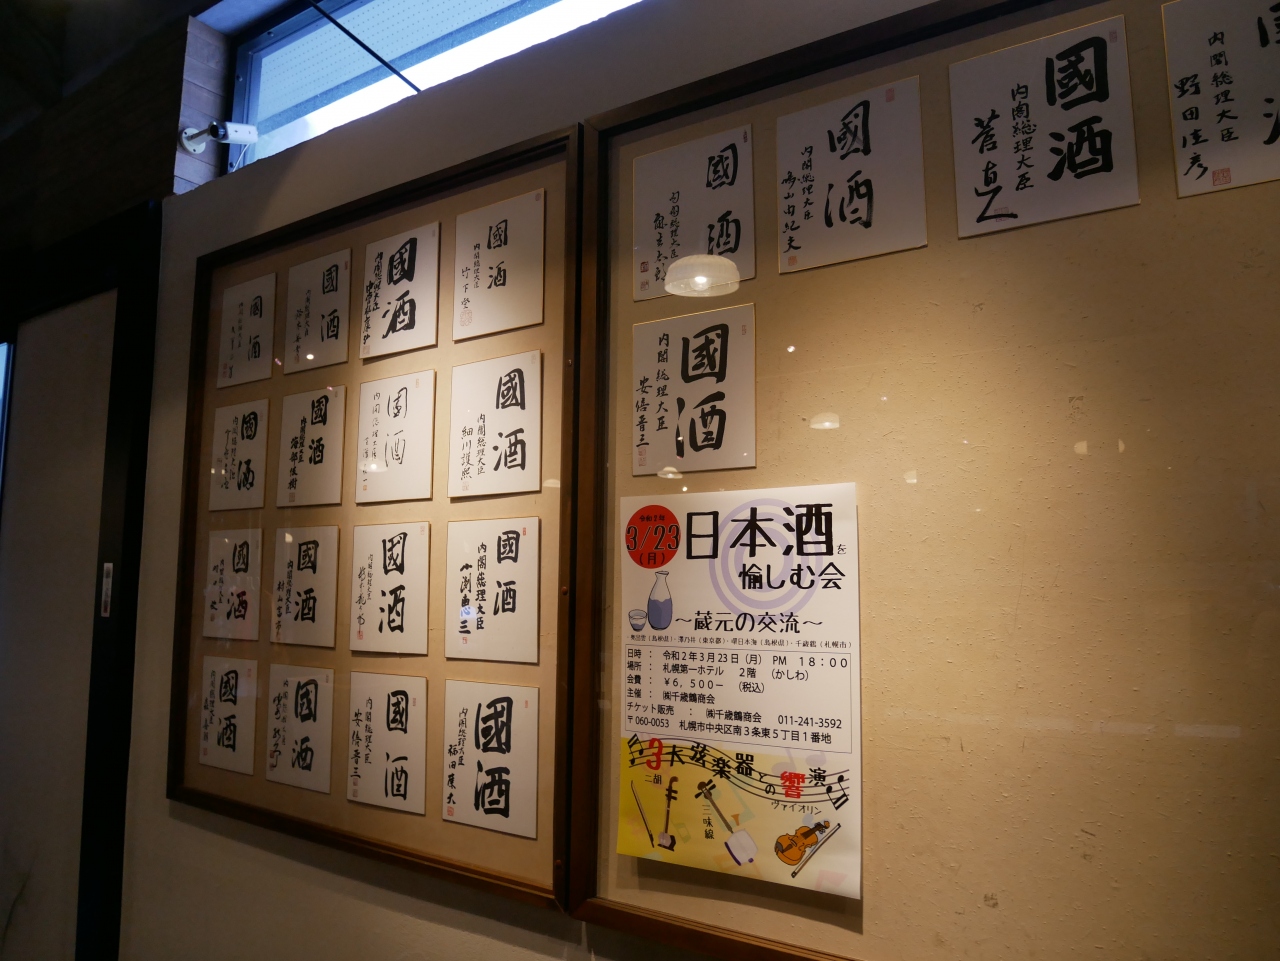 國酒
内閣総理大臣
國酒
内閣総理大臣
國酒
内閣総理大臣
國酒
内閣総理大臣
竹下登
國酒
内閣総理大臣
國酒
内閣総理大臣
海部俊樹
國酒
内閣総理大臣
國酒
内閣総理大臣
細川護熙
國酒
内閣総理大臣
國酒
内閣総理大臣
村山富市
國酒
内閣総理大臣
國酒
内閣総理大臣
小渕恵三
國酒
内閣総理大臣
森喜朗
國酒
内閣総理大臣
國酒
内閣総理大臣
安倍晋三
國酒
内閣総理大臣
福田康夫
國酒
内閣総理大臣
麻生太郎
國酒
内閣総理大臣
鳩山由紀夫
國酒
内閣総理大臣
菅直人
内閣総理大臣
野田佳彦
國酒
内閣総理大臣
安倍晋三
令和2年
3/23
(月)
日本酒を
愉しむ会
～蔵元の交流～
(島根県)・澤乃井(東京都)・環日本海(島根県)・千歳鶴(札幌市)
日時 : 令和2年3月23日(月) PM 18:00
場所 : 札幌第一ホテル 2階 (かしわ)
会費 : ￥6,500- (税込)
主催 : ㈱千歳鶴商会
チケット販売 : ㈱千歳鶴商会 011-241-3592
〒060-0053 札幌市中央区南3条東5丁目1番地
3大弦楽器との響演
二胡
三味線
ヴァイオリン